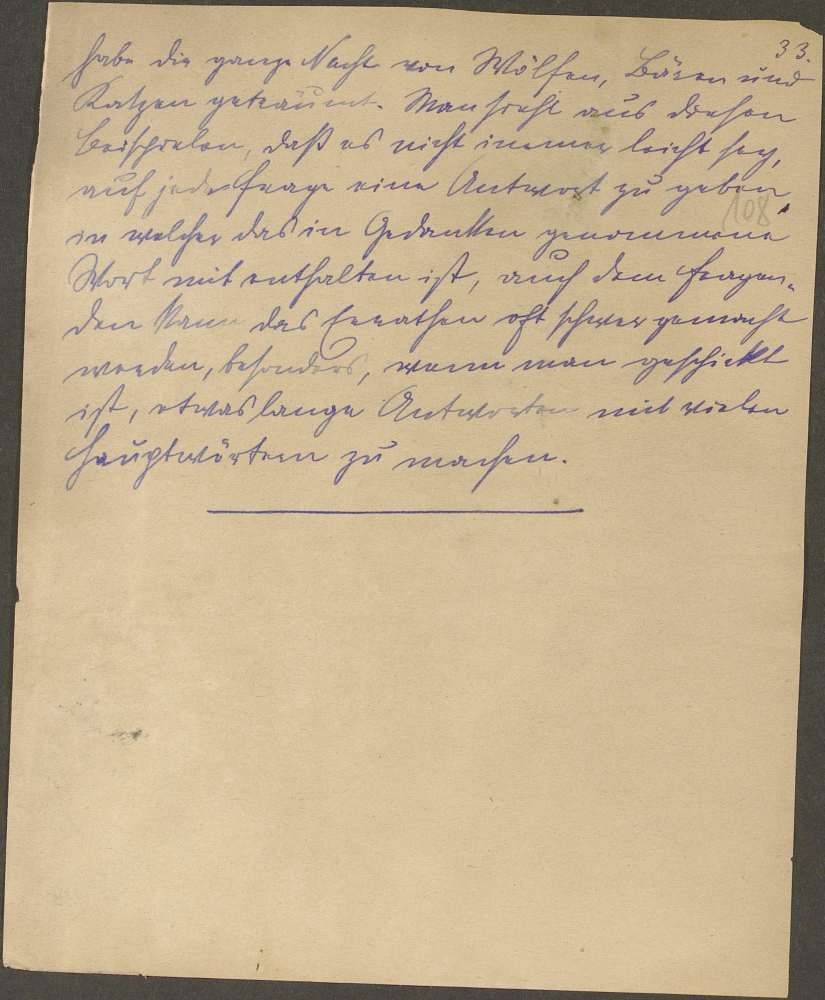 33.
habe die ganze Nacht von Wölfen, Bären und
Katzen geträumt. Man sieht aus diesen
Beispielen, daß es nicht immer leicht sey,
auf jede Frage eine Antwort zu geben
108
in welcher das in Gedanken genommene
Wort mit enthalten ist, auch dem Fragen-
den kann das Errathen oft schwer gemacht
werden, besonders, wenn man geschickt
ist, etwas lange Antworten mit vielen
Hauptwörtern zu machen.